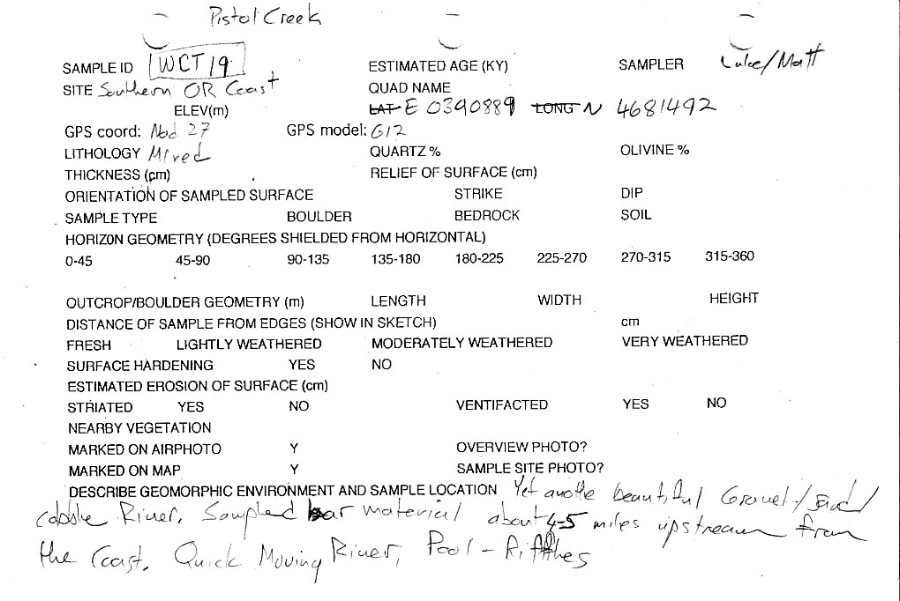 Pistol Creek
SAMPLE ID WCT19 ESTIMATED AGE (KY) SAMPLER Luke/Matt
SITE Southern OR Coast QUAD NAME
ELEV(m) LAT E 0390889 LONG N 4681492
GPS coord: Nad 27 GPS model: G12
LITHOLOGY Mixed QUARTZ % OLIVINE %
THICKNESS (cm) RELIEF OF SURFACE (cm)
ORIENTATION OF SAMPLED SURFACE STRIKE DIP
SAMPLE TYPE BOULDER BEDROCK SOIL
HORIZON GEOMETRY (DEGREES SHIELDED FROM HORIZONTAL)
0-45 45-90 90-135 135-180 180-225 225-270 270-315 315-360
OUTCROP/BOULDER GEOMETRY (m) LENGTH WIDTH HEIGHT
DISTANCE OF SAMPLE FROM EDGES (SHOW IN SKETCH) cm
FRESH LIGHTLY WEATHERED MODERATELY WEATHERED VERY WEATHERED
SURFACE HARDENING YES NO
ESTIMATED EROSION OF SURFACE (cm)
STRIATED YES NO VENTIFACTED YES NO
NEARBY VEGETATION
MARKED ON AIRPHOTO Y OVERVIEW PHOTO?
MARKED ON MAP Y SAMPLE SITE PHOTO?
DESCRIBE GEOMORPHIC ENVIRONMENT AND SAMPLE LOCATION Yet anothe beautiful Gravel/sand/
cobble River. Sampled bar material about 4-5 miles upstream from
the Coast. Quick Moving River, Pool - Riffles